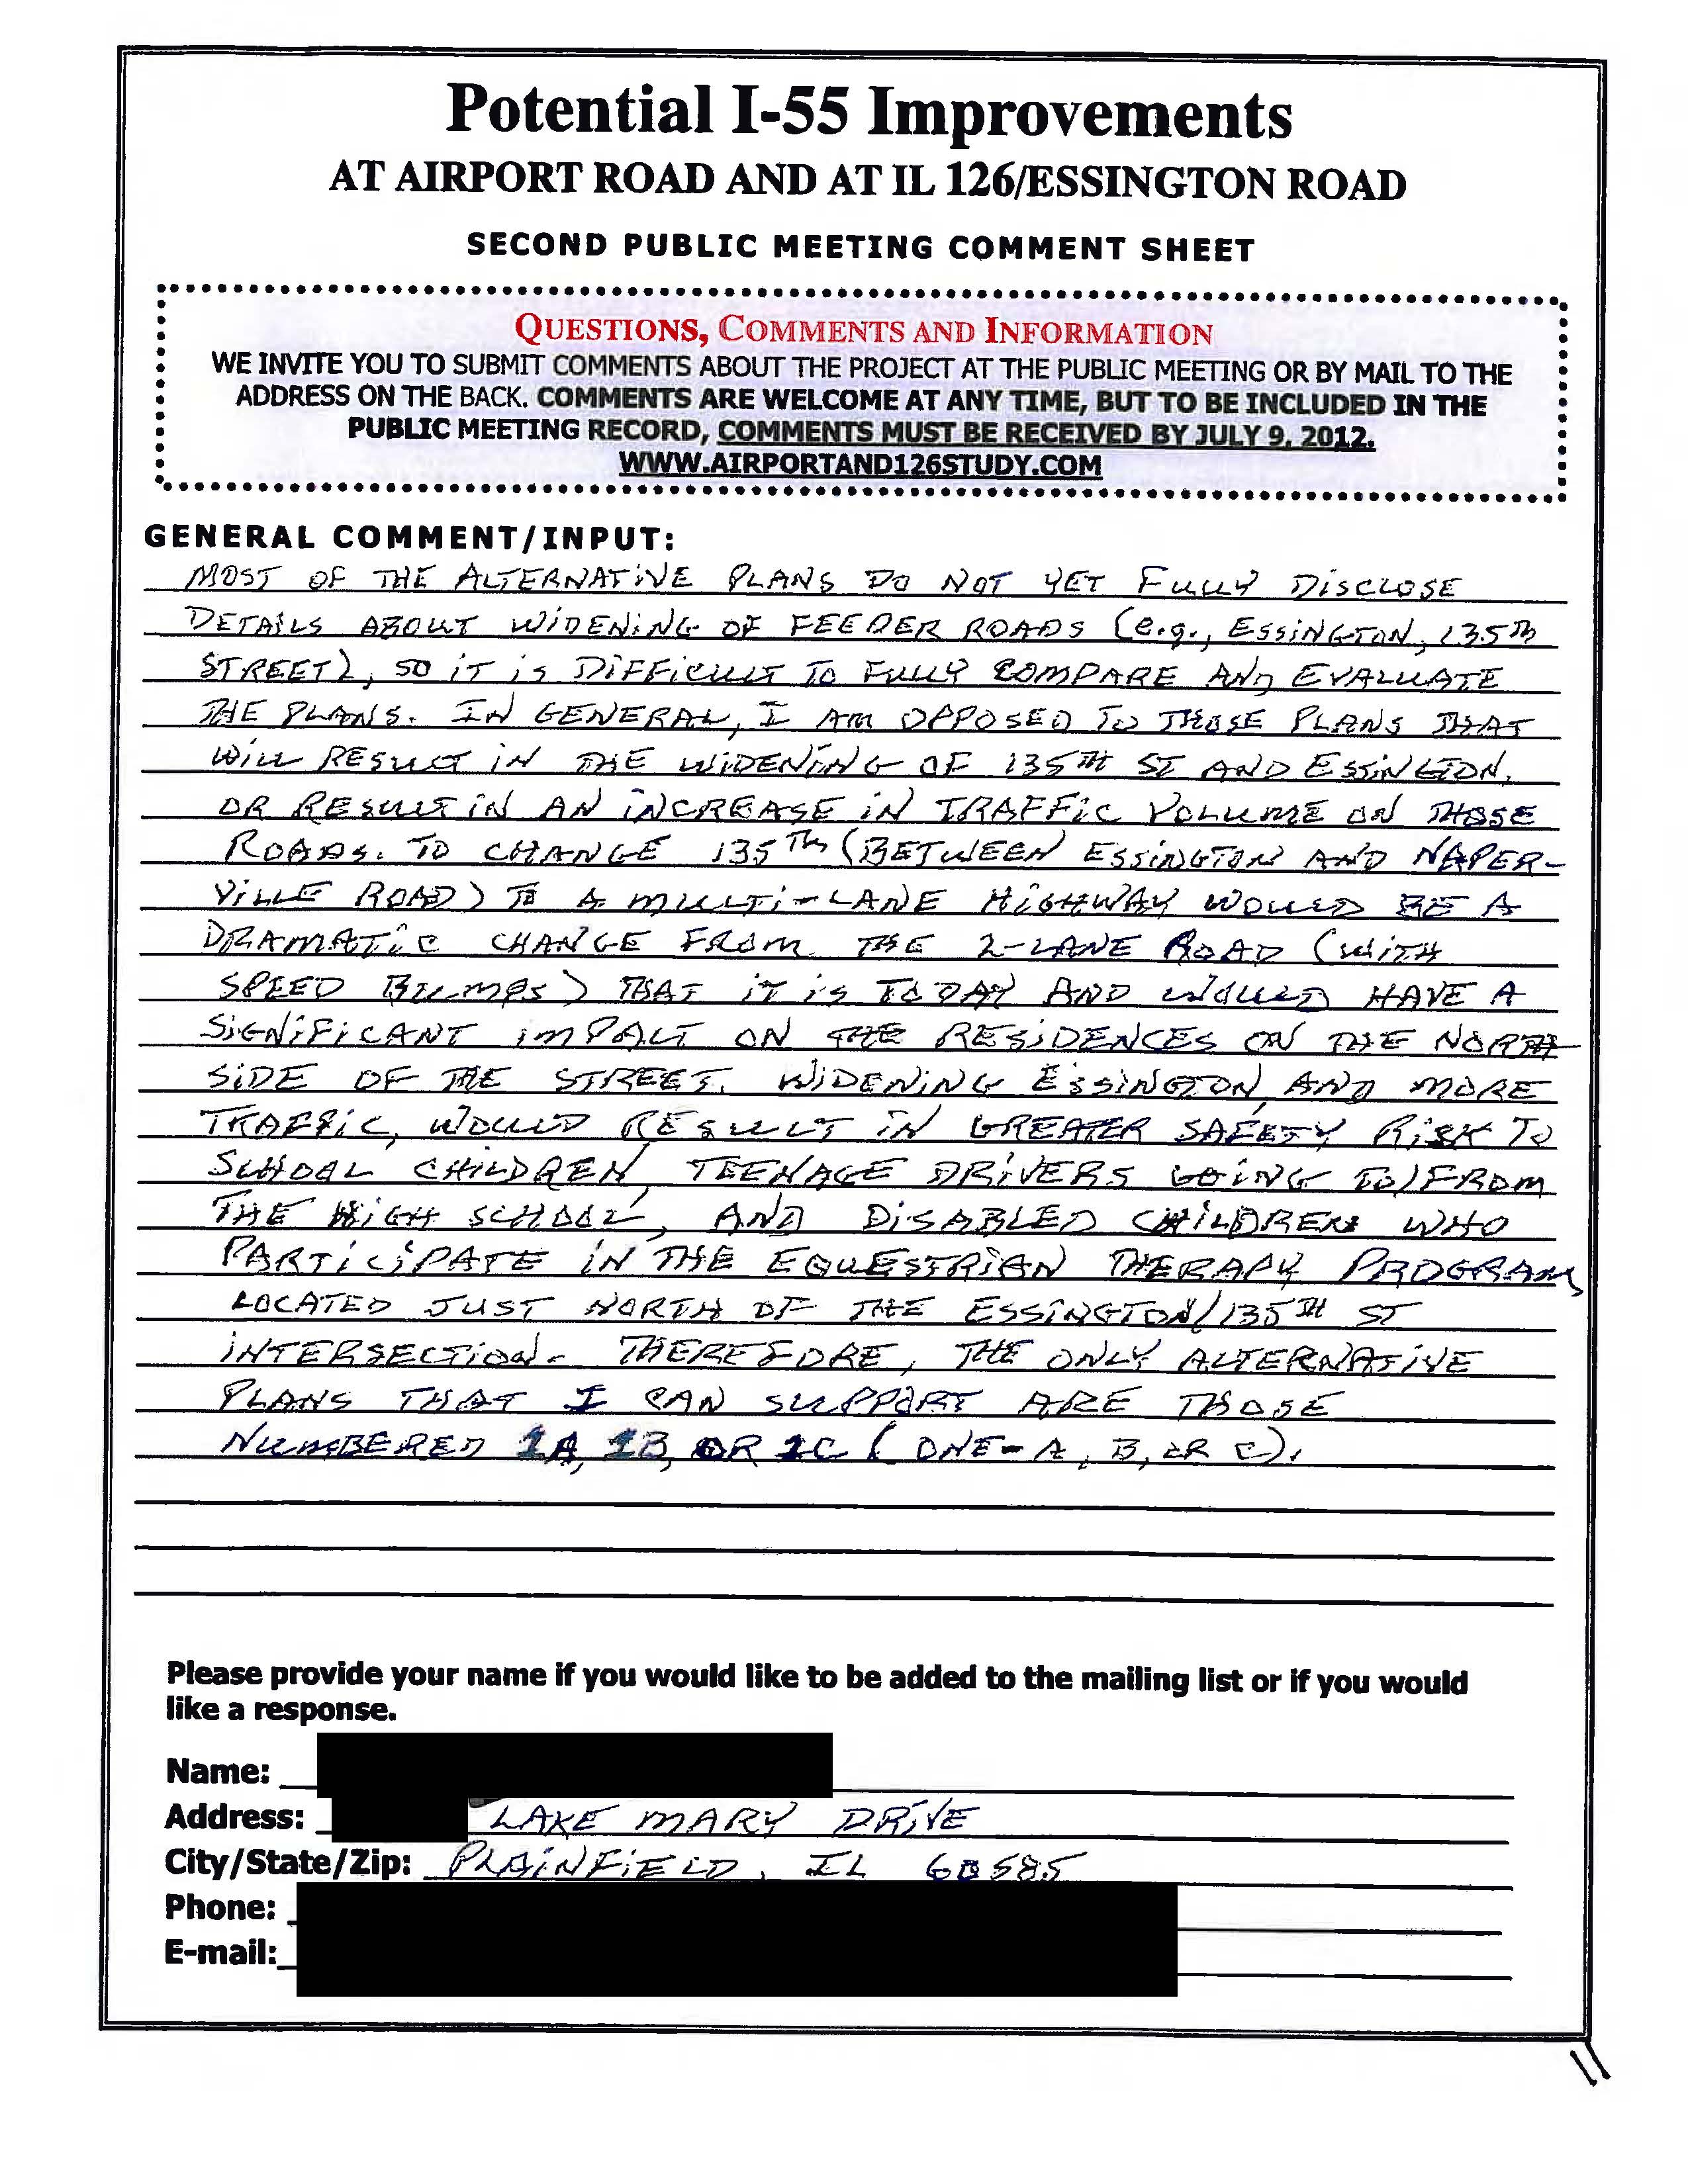 Potential I-55 Improvements
AT AIRPORT ROAD AND AT IL 126/ESSINGTON ROAD
SECOND PUBLIC MEETING COMMENT SHEET
QUESTIONS, COMMENTS AND INFORMATION
WE INVITE YOU TO SUBMIT COMMENTS ABOUT THE PROJECT AT THE PUBLIC MEETING OR BY MAIL TO THE
ADDRESS ON THE BACK. COMMENTS ARE WELCOME AT ANY TIME, BUT TO BE INCLUDED IN THE
PUBLIC MEETING RECORD, COMMENTS MUST BE RECEIVED BY JULY 9, 2012.
WWW.AIRPORTAND126STUDY.COM
GENERAL COMMENT/INPUT:
MOST OF THE ALTERNATIVE PLANS DO NOT YET FULLY DISCLOSE
DETAILS ABOUT WIDENING OF FEEDER ROADS (e.g., ESSINGTON, 135th
STREET), SO IT IS DIFFICULT TO FULLY COMPARE AND EVALUATE
THE PLANS. IN GENERAL, I AM OPPOSED TO THOSE PLANS THAT
WILL RESULT IN THE WIDENING OF 135TH ST AND ESSINGTON,
OR RESULT IN AN INCREASE IN TRAFFIC VOLUME ON THOSE
ROADS. TO CHANGE 135Th (BETWEEN ESSINGTON AND NAPER-
VILLE ROAD) TO A MULTI-LANE HIGHWAY WOULD BE A
DRAMATIC CHANGE FROM THE 2-LANE ROAD (WITH
SPEED BUMPS) THAT IT IS TODAY AND WOULD HAVE A
SIGNIFICANT IMPACT ON THE RESIDENCES ON THE NORTH
SIDE OF THE STREET. WIDENING ESSINGTON, AND MORE
TRAFFIC, WOULD RESULT IN GREATER SAFETY RISK TO
SCHOOL CHILDREN, TEENAGE DRIVERS GOING TO/FROM
THE HIGH SCHOOL, AND DISABLED CHILDREN WHO
PARTICIPATE IN THE EQUESTRIAN THERAPY PROGRAM
LOCATED JUST NORTH OF THE ESSINGTON/135TH ST
INTERSECTION. THEREFORE, THE ONLY ALTERNATIVE
PLANS THAT I CAN SUPPORT ARE THOSE
NUMBERED 1A, 1B, OR 1C (ONE-A, B, OR C).
Please provide your name if you would like to be added to the mailing list or if you would
like a response.
Name:
Address: LAKE MARY DRIVE
City/State/Zip: PLAINFIELD, IL 60585
Phone:
E-mail: